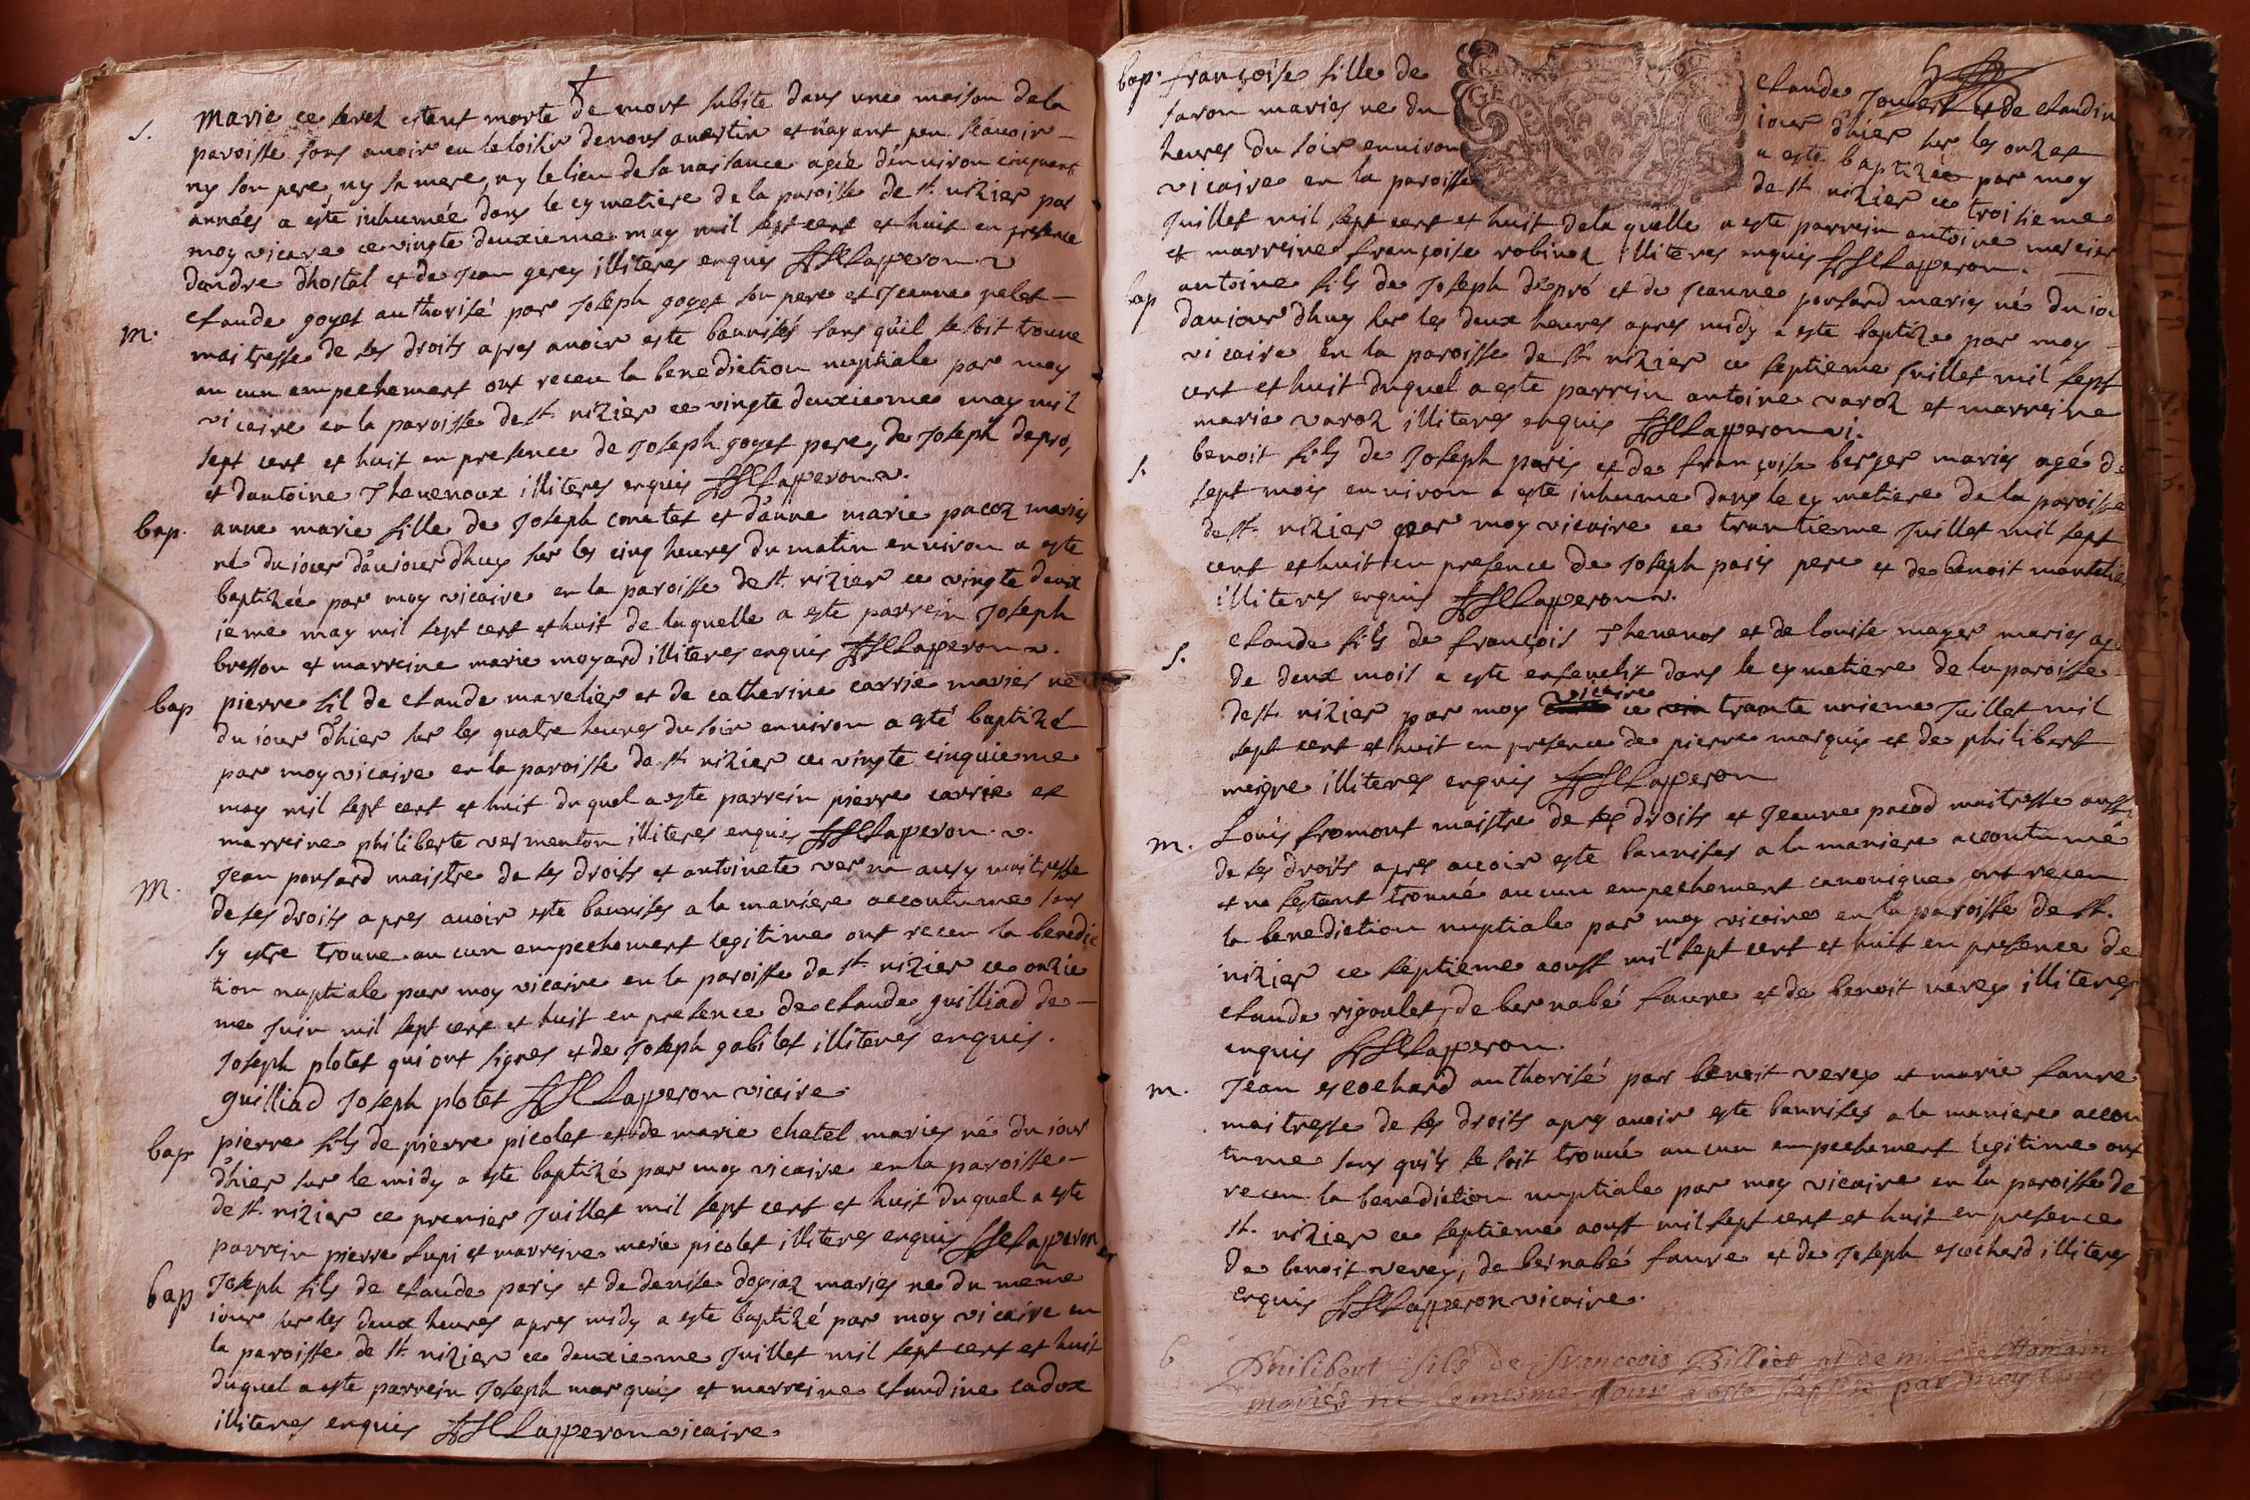 S. Marie ce serez estant morte de mort subite dans une maison de la
paroisse sans avoir eu le loisir de nous avertir et n'ayant peu scavoir
ny son pere, ny sa mere, ny le lieu de sa naissance agée d'environ cinquante
années a este inhumée dans le cymetiere de la paroisse de st. nizier par
moy vicaire ce vingte deuxieme may mil sept cent et huit en presence
dandre dhostal et de Jean gerey illiteres enquis Lapperon v
m. claude goyet authorisé par Joseph goyet son pere et Jeanne pelet
maitresse de ses droits apres avoir este bannisés sans qu'il se soit trouve
aucun empechement ont receu la benediction nuptiale par moy
vicaire en la paroisse de st. nizier ce vingte deuxieme may mil
sept cent et huit en presence de Joseph goyet pere, de Joseph depro,
et dantoine Thevenoux illiteres enquis Lapperon v.
bap. anne marie fille de Joseph contet et d'anne marie pacoz mariés
né du iour d'auiourdhuy sur les cinq heures du matin environ a este
baptizée par moy vicaire en la paroisse de st nizier ce vingte deux
ieme may mil sept cent et huit de laquelle a este parrein Joseph
bresson et marreine marie moyard illiteres enquis Lapperon v.
bap pierre fil de claude marelier et de catherine carrie mariés né
du iour d'hier sur les quatre heures du soir environ a esté baptizé
par moy vicaire en la paroisse de st nizier ce vingte cinquieme
may mil sept cent et huit duquel a este parrein pierre carrie et
marreine philiberte vermenton illiteres enquis Lapperon. v.
M. Jean ponsard maistre de ses droits et antoinete verne ausy maitresse
de ses droits apres avoir este bannises a la maniere accoutumé sans
sy estre trouve aucun empechement legitime ont receu la benedic
tion nuptiale par moy vicaire en la paroisse de st nizier ce onzie
me Juin mil sept cent et huit en presence de claude guilliad de
Joseph plotet qui ont signes et de Joseph gabilet illiteres enquis.
guilliad Joseph plotet Lapperon vicaire.
bap pierre fils de pierre picolet et de marie chatel mariés né du iour
d'hier sur le midy a este baptizé par moy vicaire en la paroisse
de st. nizier ce premier Juillet mil sept cent et huit duquel a este
parrein pierre Lupi et marreine marie picolet illiteres enquis Lapperon
bap Joseph fils de claude paris et de denise mariés né du meme
iour sur les deux heures apres midy a este baptizé par moy vicaire en
la paroisse de st. nizier ce deuxieme Juillet mil sept cent et huit
duquel a este parrein Joseph marquis et marreine claudine cadox
illiteres enquis Lapperon vicaire.
bap. françoise fille de claude Joubert et de claudin
saron mariés ne du iour d'hier sur les onze
heures du soir environ a este baptizée par moy
vicaire en la paroisse de st nizier ce troisieme
Juillet mil sept cent et huit de la quelle a este parrein antoine mercier
et marreine françoise robinoz illiteres enquis Lapperon.
bap antoine fils de Joseph depró et de Jeanne ponsard mariés né du iou
dauiourdhuy sur les deux heures apres midy a este baptize par moy
vicaire en la paroisse de st. nizier ce septieme Juillet mil sept
cent et huit duquel a este parrein antoine varoz et marreine
marie varoz illiteres enquis Lapperon vi.
S. benoit fils de Joseph paris et de françoise berger mariés agé de
sept mois environ a este inhume dans le cymetiere de la paroisse
de st. nizier par moy vicaire ce trantieme Juillet mil sept
cent et huit en presence de Joseph paris pere et de benoit
illiteres enquis Lapperon v.
S. claude fils de françois Thevenos et de louise mayer mariés agé
de deux mois a este enseuelis dans le cymetiere de la paroisse
de st. nizier par moy vicaire ce trante unieme Juillet mil
sept cent et huit en presence de pierre marquis et de philibert
meigre illiteres enquis Lapperon
m. Louis fromont maistre de ses droits et Jeanne pacod maitresse aussi
de ses droits apres avoir este bannises a la maniere accoutumé
et ne sestant trouvé aucun empechement canonique ont receu
la benediction nuptiale par moy vicaire en la paroisse de st.
nizier ce septieme aoust mil sept cent et huit en presence de
claude rigoulet, de bernabé faure et de benoit verey illiteres
enquis Lapperon.
m. Jean escochard authorisé par benoit verey et marie faure
maitresse de ses droits apres avoir este bannises a la maniere accou
tume sans qu'il se soit trouvé aucun empechement legitime ont
receu la benediction nuptiale par moy vicaire en la paroisse de
st. nizier ce septieme aoust mil sept cent et huit en presence
de benoit verey, de bernabé faure et de Joseph escochard illiteres
enquis Lapperon vicaire.
b Philibert fils de francois Billiet et de marie
mariés né le mesme Jour a este baptisé par moy